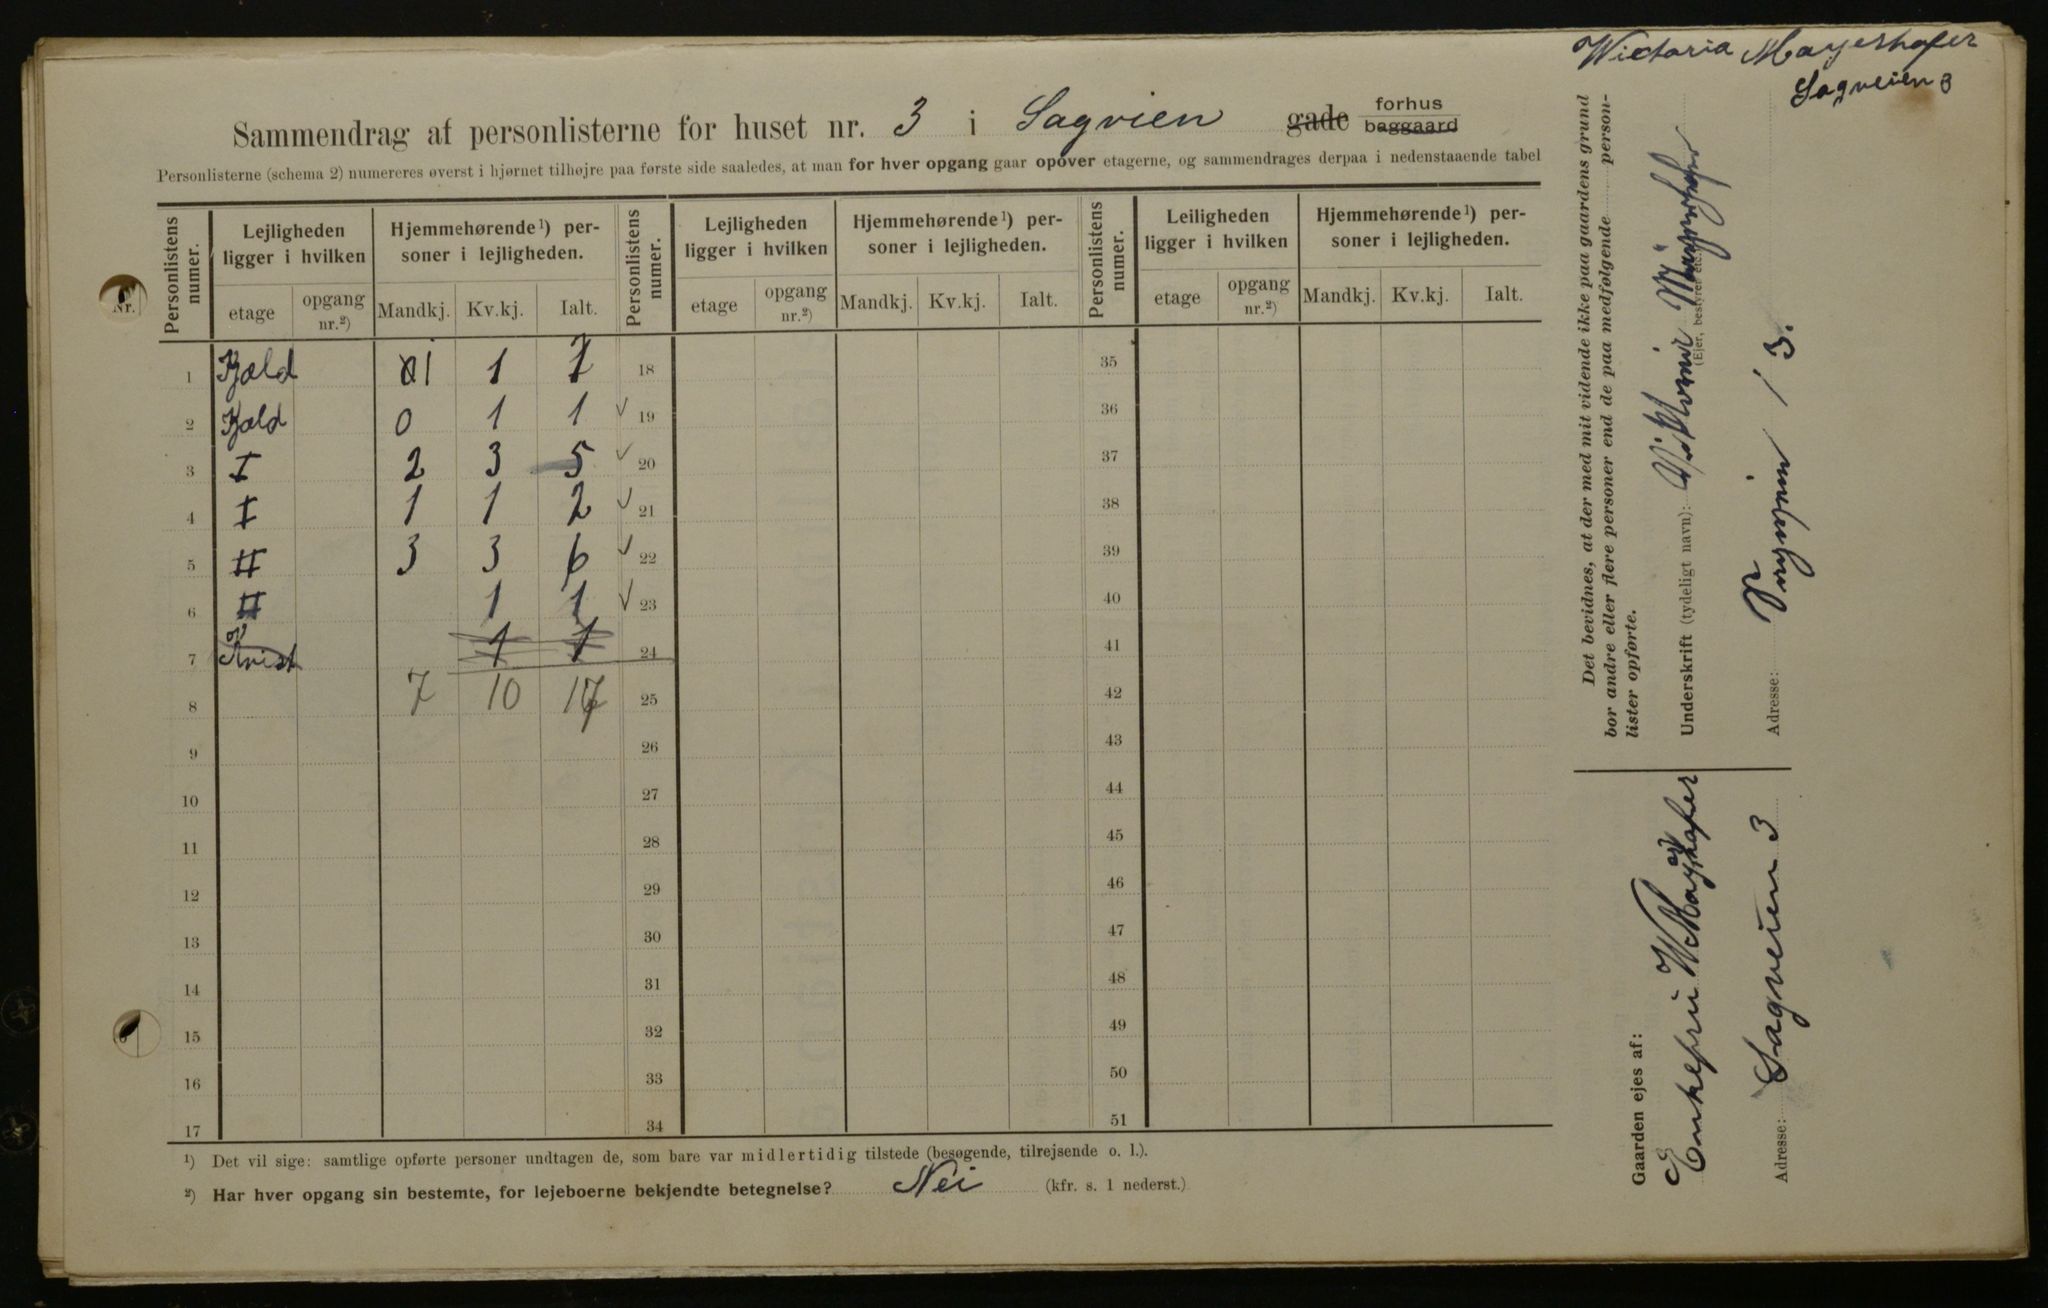 Wictoria Mayerhofer
Sagveien 3
Sammendrag af personlisterne for huset nr. 3 i Sagvien gade forhus baggaard
Personlisterne (schema 2) numereres øverst i hjørnet tilhøjre paa første side saaledes, at man for hver opgang gaar opover etagerne, og sammendrages derpaa i nedenstaaende tabel
Personlistens numer. Lejligheden ligger i hvilken Hjemmehørende ¹) personer i lejligheden. Personlistens numer. Lejligheden ligger i hvilken Hjemmehørende ¹) personer i lejligheden. Personlistens numer. Leiligheden ligger i hvilken Hjemmehørende ¹) personer i lejligheden.
etage opgang nr.²) Mandkj. Kv.kj. Ialt. etage opgang nr.²) Mandkj. Kv.kj. Ialt. etage opgang nr.²) Mandkj. Kv.kj. Ialt.
Nr.
1 Kjæld 1 1 2 18 35
2 Kjæld 0 1 1 19 36
3 I 2 3 5 20 37
4 I 1 1 2 21 38
5 II 3 3 6 22 39
6 II 1 1 23 40
7 Kvist 1 1 24 41
8 7 10 17 25 42
9 26 43
10 27 44
11 28 45
12 29 46
13 30 47
14 31 48
15 32 49
16 33 50
17 34 51
¹) Det vil sige: samtlige opførte personer undtagen de, som bare var midlertidig tilstede (besøgende, tilrejsende o. l.).
²) Har hver opgang sin bestemte, for lejeboerne bekjendte betegnelse? Nei (kfr. s. 1 nederst.)
Det bevidnes, at der med mit vidende ikke paa gaardens grund
bor andre eller flere personer end de paa medfølgende personlister opførte.
Underskrift (tydeligt navn):
(Ejer, bestyrer etc.)
Adresse: Sagveien 3.
Gaarden ejes af:
Enkefru W Mayerhofer
Adresse: Sagveien 3